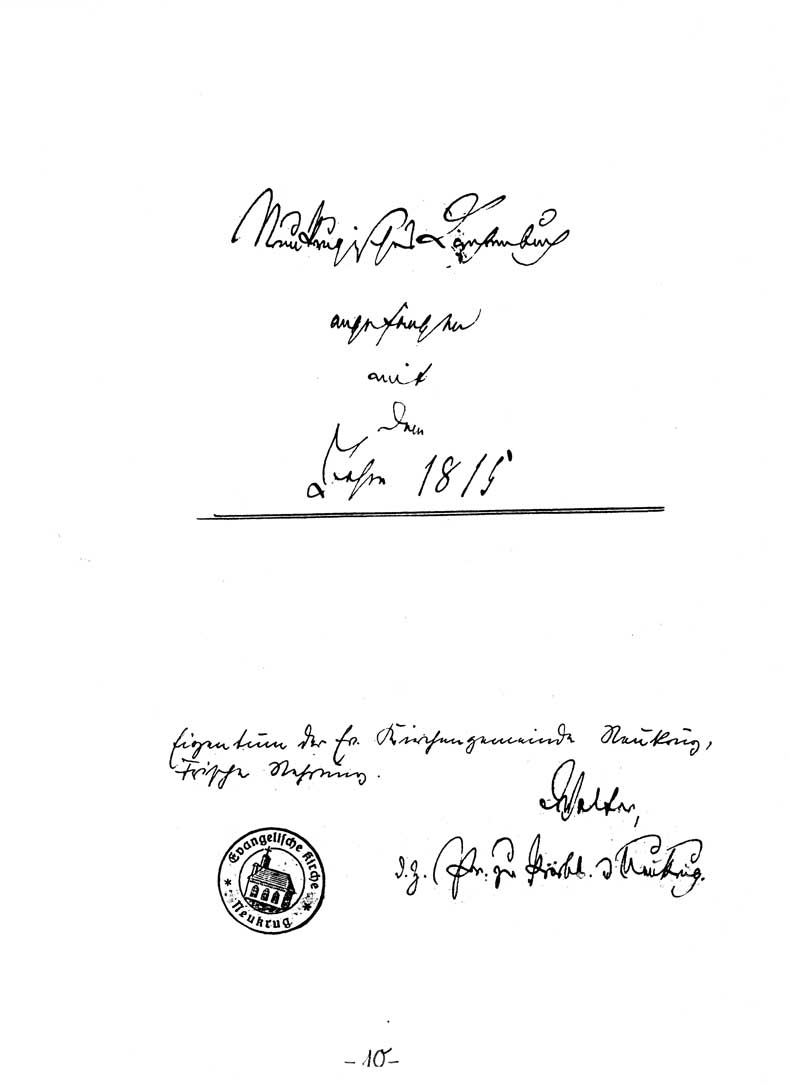 Neukrugisches Taufenbuch
angefangen
mit
dem
Jahre 1815
Eigentum der Ev. Kirchengemeinde Neukrug,
Frische Nehrung.
Walter,
d. z. Pfr. zu Pröbb. u Neukrug.
Evangelische Kirche
* Neukrug *
-10-